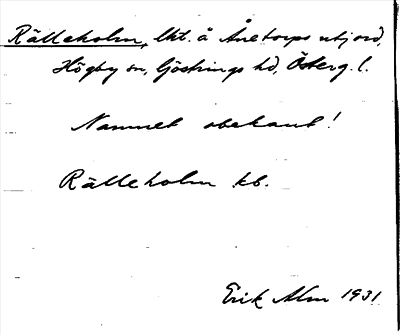 Rälleholm, lht. å Åretorps utjord,
Högby sn, Göstrings hd, Österg. l.
Namnet obekant!
Rälleholm kb.
Erik Alm 1931